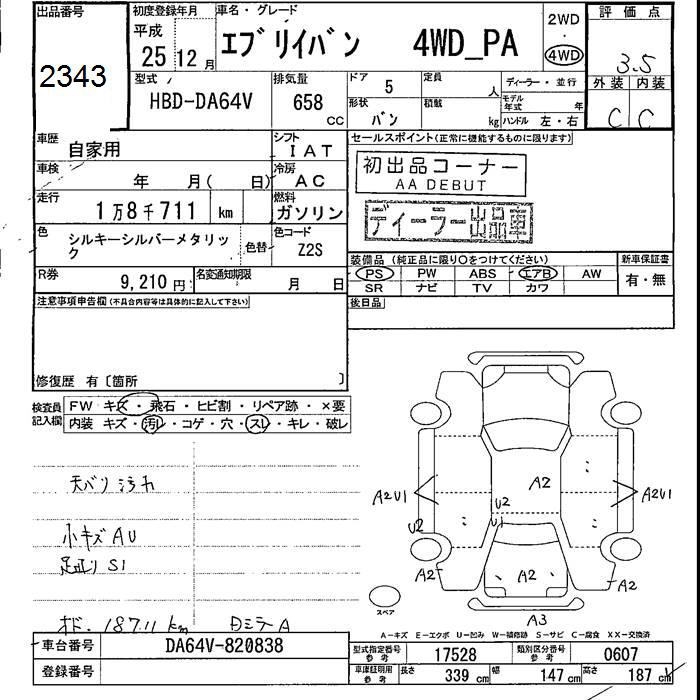 出品番号 初度登録年月 車名・グレード 2WD 評価点
2343 平成 25 12月 エブリイバン 4WD_PA ・ 4WD 3.5
型式 排気量 ドア 定員 ディーラー・並行 外装 内装
HBD-DA64V 658 CC 5 人 モデル年式 年 C C
形状 バン 積載 kg ハンドル 左・右
車歴 自家用 シフト IAT セールスポイント(正常に機能するものに限ります)
車検 年 月( 日) 冷房 AC 初出品コーナー
AA DEBUT
走行 1万8千711 km 燃料 ガソリン ディーラー出品車
色 シルキーシルバーメタリック 色替 色コード Z2S
装備品(純正品に限り○をつけてください) 新車保証書
R券 9,210円 名変通知期限 月 日 PS PW ABS エアB AW 有・無
SR ナビ TV カワ
注意事項申告欄(不具合内容等は具体的に記入して下さい) 後日品
修復歴 有〔箇所 〕
検査員記入欄 FW キズ・飛石・ヒビ割・リペア跡・×要
内装 キズ・汚レ・コゲ・穴・スレ・キレ・破レ
天バリ汚れ
小キズAU
S1
18711km
A2U1 U2 U2 U1 A2 A2U1
A2 A2 A2
スペア A3
A-キズ E-エクボ U-凹み W-補修跡 S-サビ C-腐食 XX-交換済
車台番号 DA64V-820838 型式指定番号 参考 17528 類別区分番号 参考 0607
登録番号 車庫証明用 参考 長さ 339cm 幅 147cm 高さ 187cm